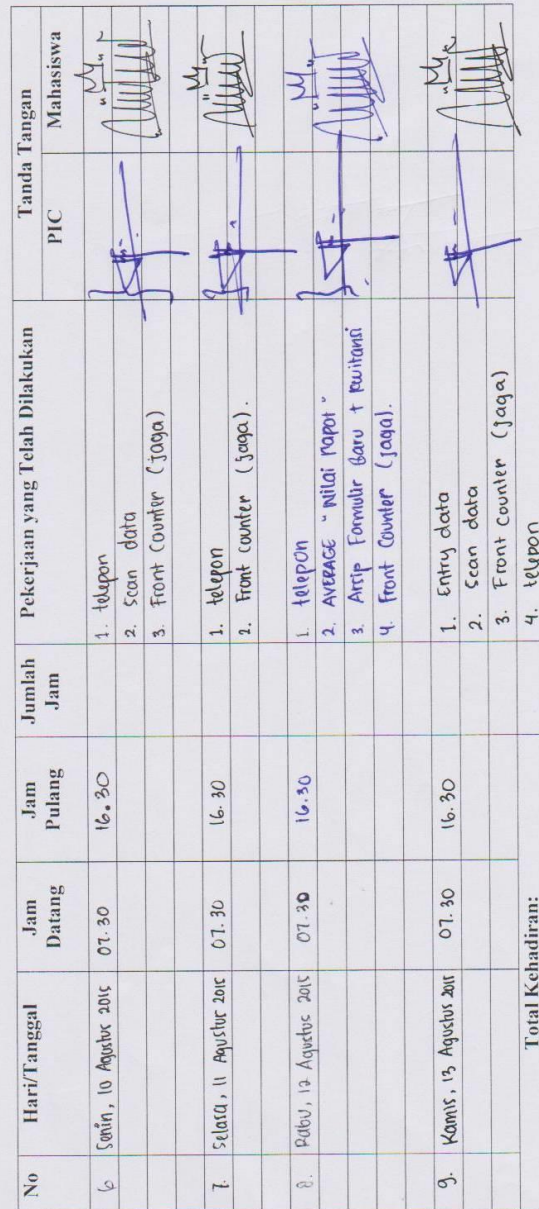 No Hari/Tanggal Jam Datang Jam Pulang Jumlah Jam Pekerjaan yang Telah Dilakukan Tanda Tangan
PIC Mahasiswa
6 Senin, 10 Agustus 2015 07.30 16.30 1. telepon
2. Scan data
3. Front Counter (jaga)
7. Selasa, 11 Agustus 2015 07.30 16.30 1. telepon
2. Front counter (jaga).
8. Rabu, 12 Agustus 2015 07.30 16.30 1. telepon
2. AVERAGE "Nilai Rapot"
3. Arsip Formulir Baru + kwitansi
4. Front Counter (jaga).
9. Kamis, 13 Agustus 2015 07.30 16.30 1. Entry data
2. Scan data
3. Front counter (jaga)
4. telepon
Total Kehadiran: